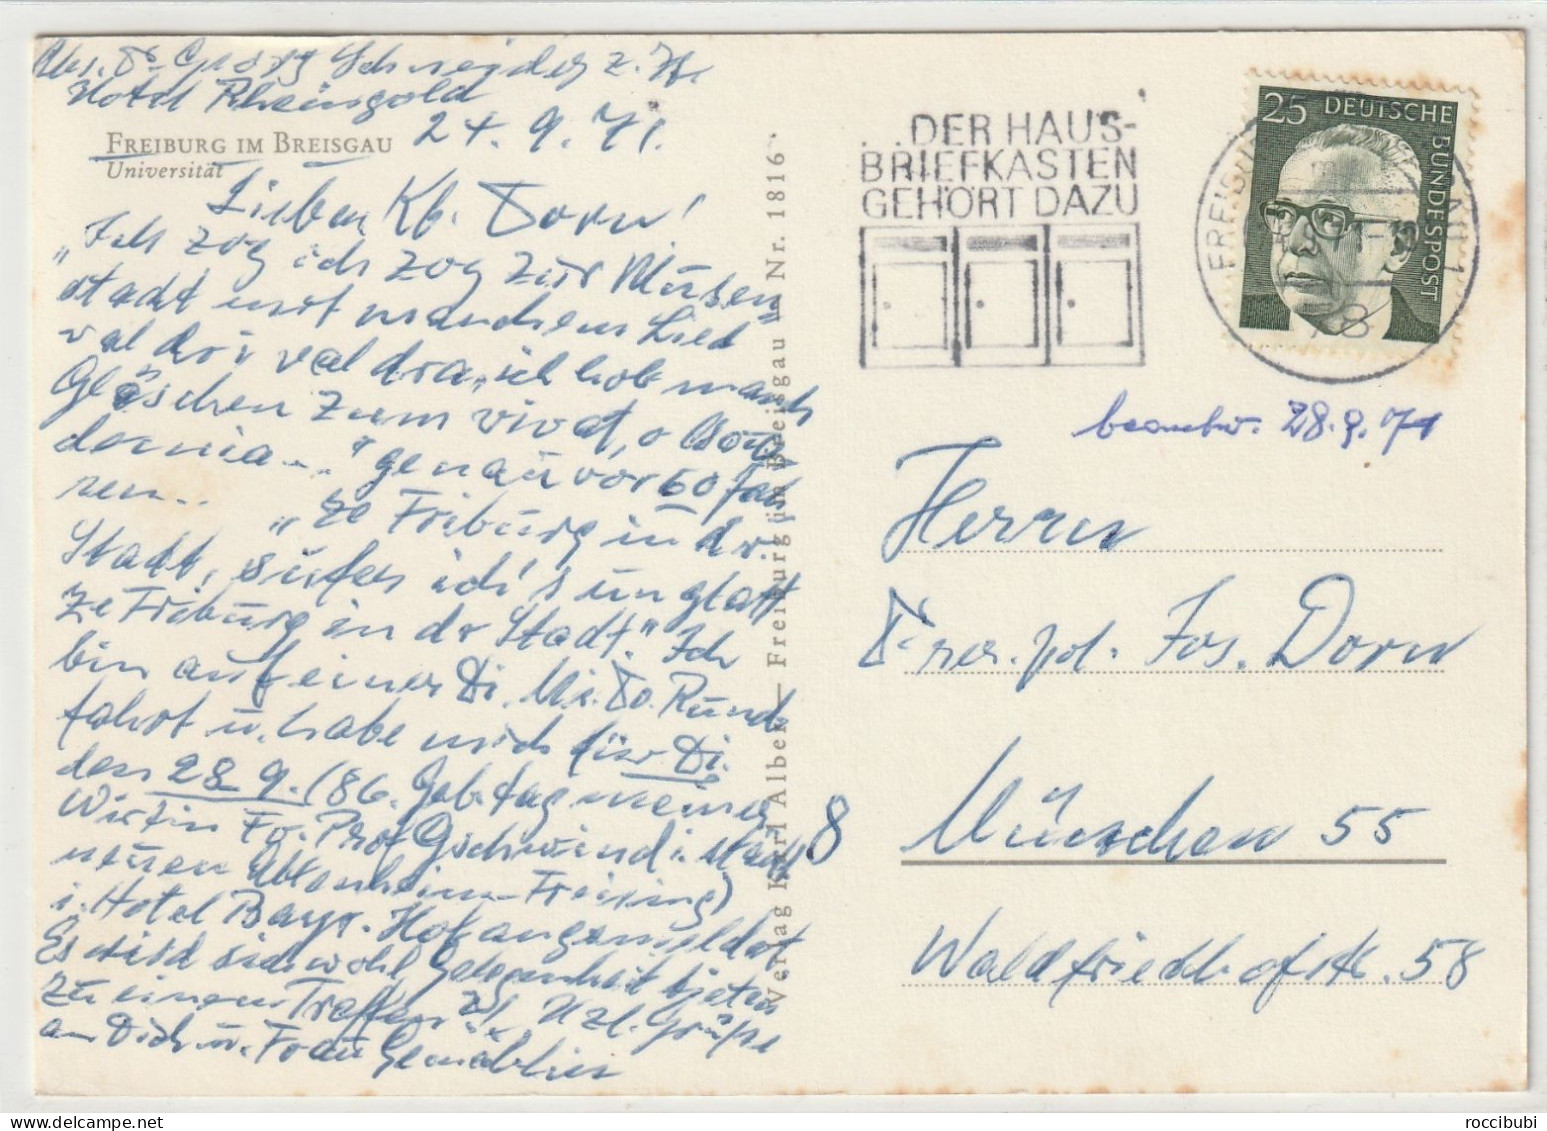 Abs. Dr. Georg Schneider z. Zt.
Hotel Rheingold
24.9.71.
FREIBURG IM BREISGAU
Universität
Lieber Kb. Dorn!
"Ich zog ich zog zur Musen
stadt mit manchem Lied
valdri valdra, ich hob manch
Gläschen zum vivat, o Bou
dornia..." genau vor 60 Jah
ren..
"Ze Friburg in dr.
Stadt, sufer isch's un glatt
Ze Friburg in dr Stadt." Ich
bin auf einer Di. Mi. Do. Rund
fahrt u. habe mich für Di.
den 28.9. (86. Geb.tag meiner
Wirtin Fr. Prof Gschwind i.
neuen Altenheim-Freising)
i. Hotel Bayr. Hof angemeldet
Es wird sich wohl Gelegenheit bieten
zu einem Treffen Hzl. Grüße
an Dich u. Frau Gemahlin
Verlag Karl Alber – Freiburg im Breisgau Nr. 1816
...DER HAUS-
BRIEFKASTEN
GEHÖRT DAZU
25 DEUTSCHE
BUNDESPOST
FREIBURG
78
beantw. 28.9.71
Herrn
Dr. rer. pol. Jos. Dorn
8 München 55
Waldfriedhofstr. 58
roccibubi